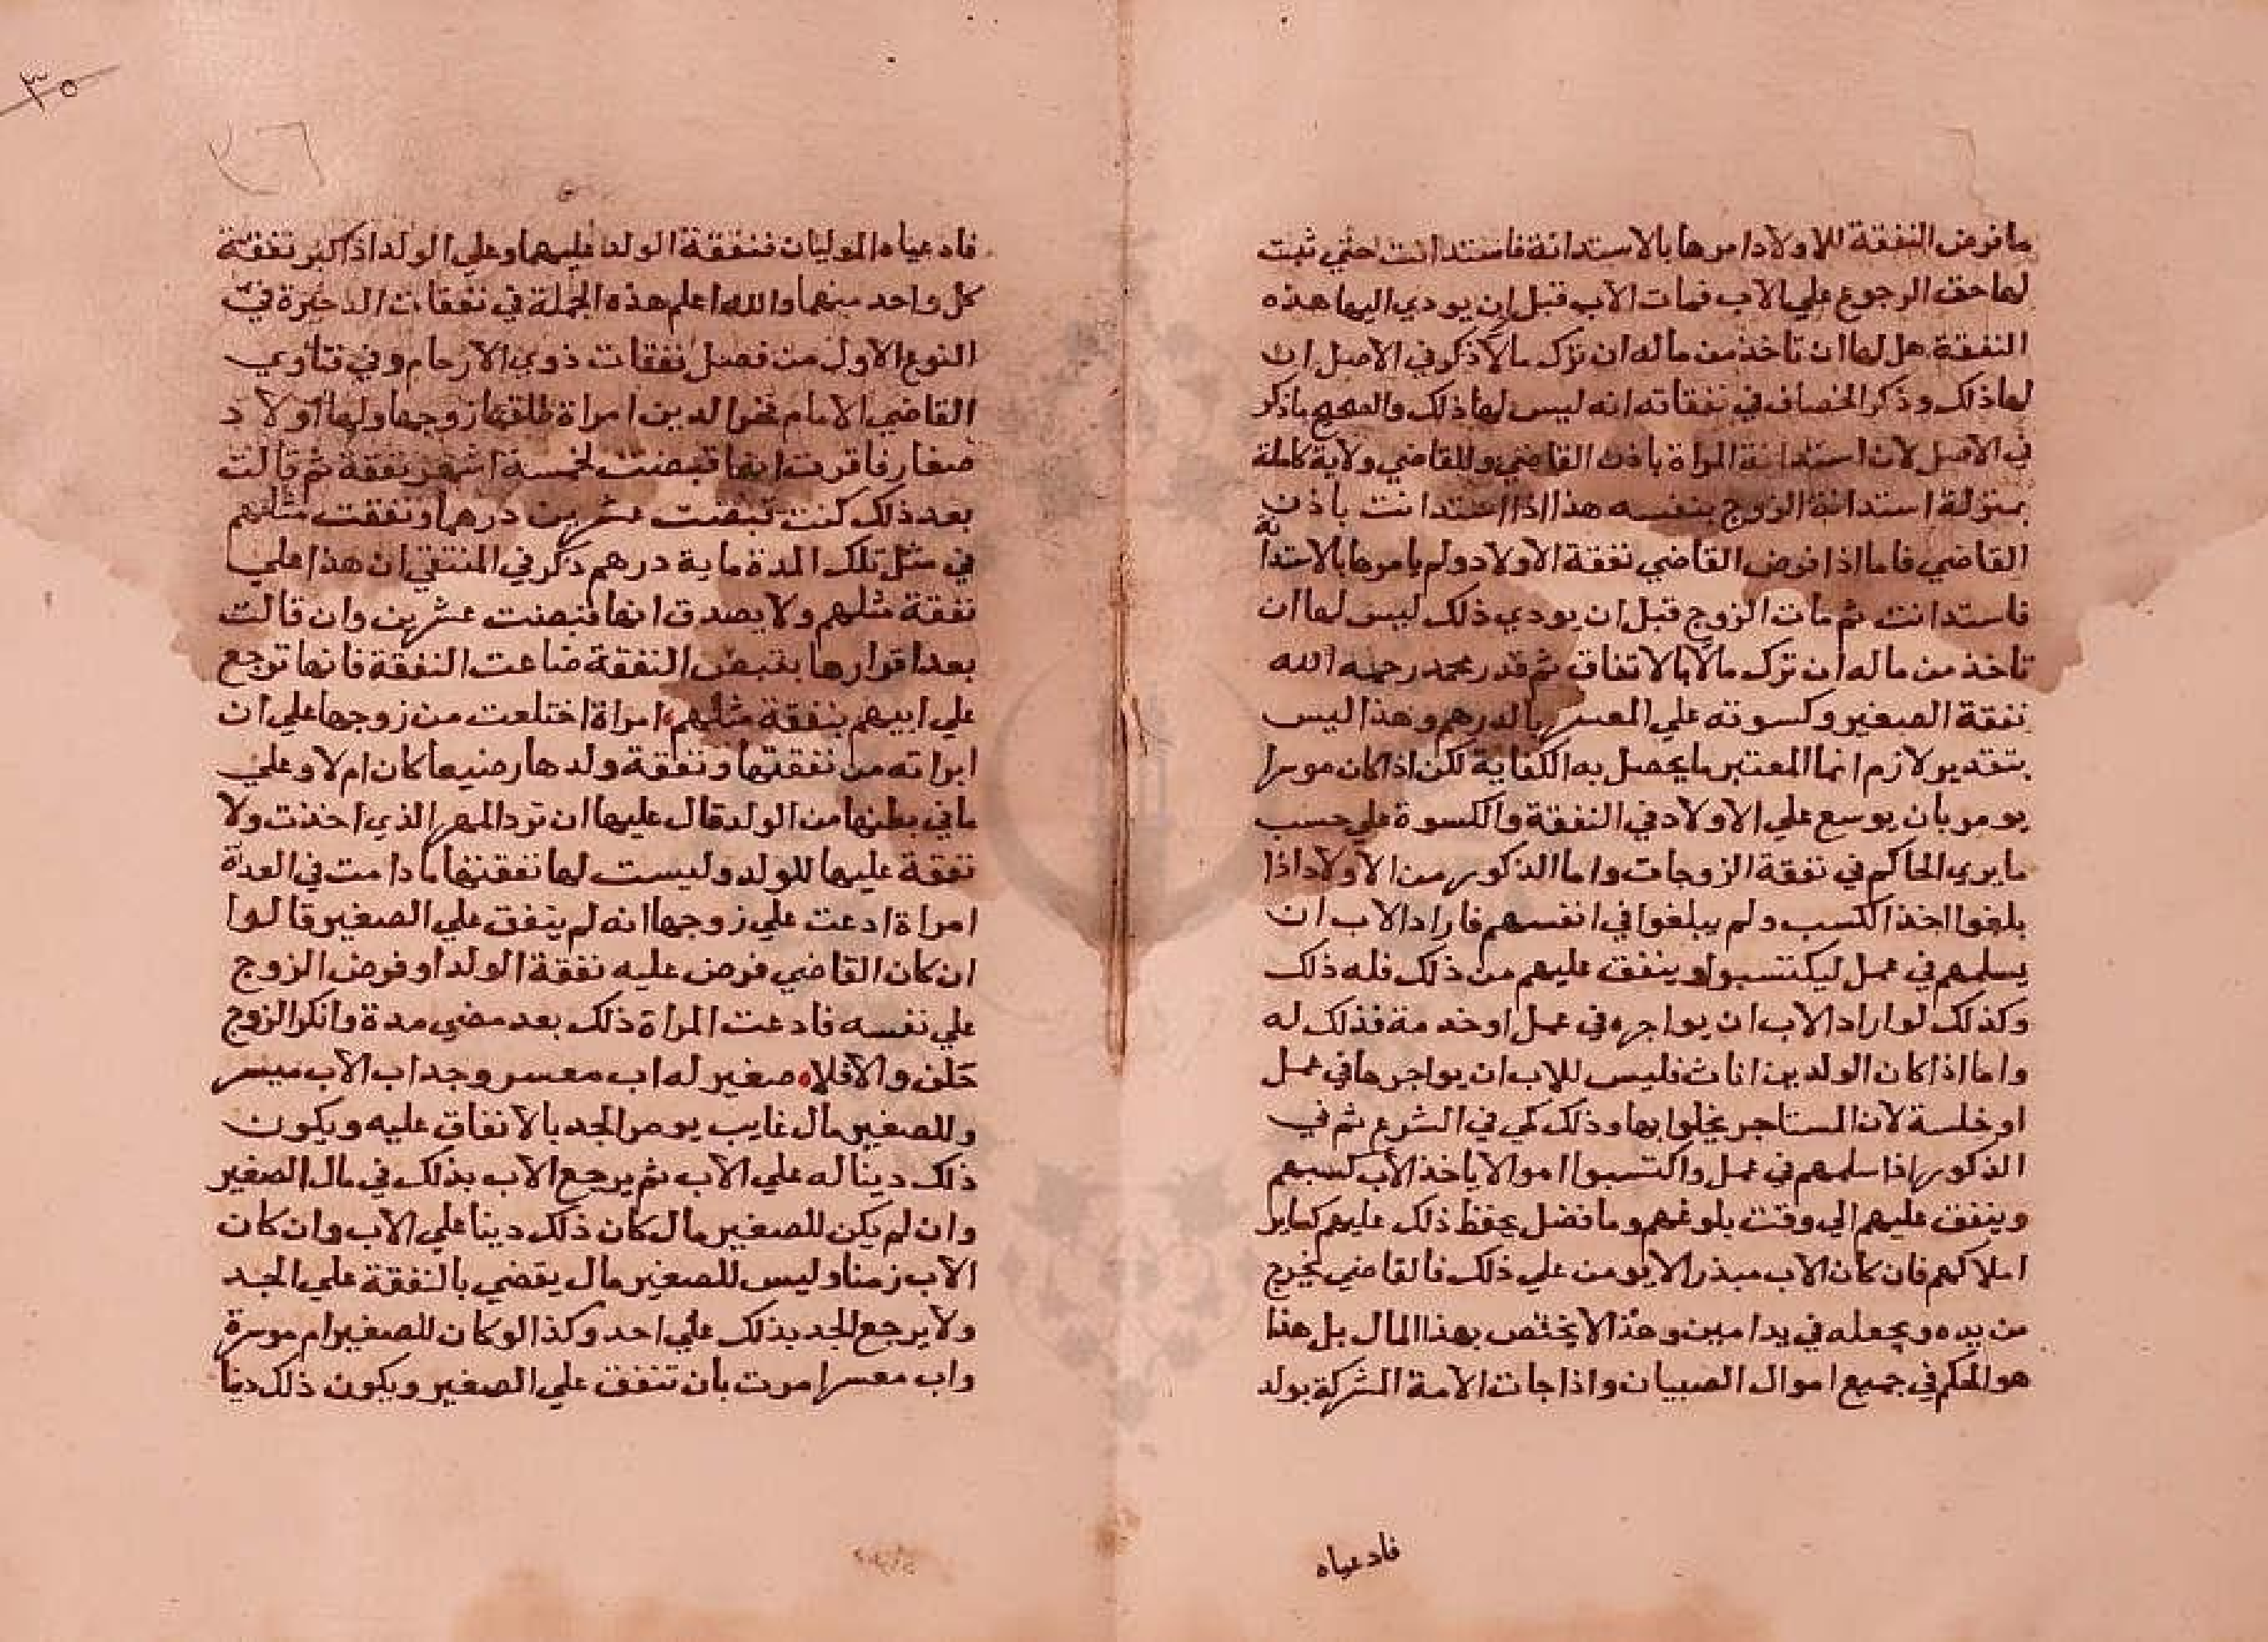 ما فرض النفقة للاولاد امرها بالاستدانة فاستدانت حتي ثبت
لها حق الرجوع علي الاب فمات الاب قبل ان يودي اليها هذه
النفقة هل لها ان تاخذ من ماله ان ترك مالا ذكر في الاصل ان
لها ذلك وذكر الخصاف في نفقاته انه ليس لها ذلك والصحيح ما ذكر
في الاصل لان استدانة المراة باذن القاضي وللقاضي ولاية كاملة
بمنزلة استدانة الزوج بنفسه هذا اذا استدانت باذن
القاضي فاما اذا فرض القاضي نفقة الاولاد ولم يامرها بالاستدانة
فاستدانت ثم مات الزوج قبل ان يودي ذلك ليس لها ان
تاخذ من ماله ان ترك مالا بالاتفاق ثم قدر محمد رحمه الله
نفقة الصغير وكسوته علي المعسر بالدرهم وهذا ليس
بتقدير لازم انما المعتبر ما يحصل به الكفاية لكن اذا كان موسرا
يومر بان يوسع علي الاولاد في النفقة والكسوة علي حسب
ما يري الحاكم في نفقة الزوجات واما الذكور من الاولاد اذا
بلغوا اخذ الكسب ولم يبلغوا في انفسهم فاراد الاب ان
يسلمهم في عمل ليكتسبوا وينفق عليهم من ذلك فله ذلك
وكذلك لو اراد الاب ان يواجره في عمل او خدمة فذلك له
واما اذا كان الولد من اناث فليس للاب ان يواجرها في عمل
او خلسة لان المستاجر يخلوا بها وذلك كمي في الشرع ثم في
الذكور اذا سلمهم في عمل واكتسبوا اموالا ياخذ الاب كسبهم
وينفق عليهم الي وقت بلوغهم وما فضل يحفظ ذلك عليهم كساير
املاكهم فان كان الاب مبذرا لا يومن علي ذلك فالقاضي يخرج
من يده ويجعله في يد امين وهذا لا يختص بهذا المال بل هذا
هو الحكم في جميع اموال الصبيان واذا جات الامة المشركة بولد
فادعياه
٣٥
٢٦
فادعياه الموليان فنفقة الولد عليهما وعلي الولد اذا كبر نفقة
كل واحد منهما والله اعلم هذه الجملة في نفقات الدخيرة في
النوع الاول من فصل نفقات ذوي الارحام وفي فتاوي
القاضي الامام فخر الدين امراة طلقها زوجها ولها اولاد
صغار فاقرت انها قبضت لخمسة اشهر نفقة ثم قالت
بعد ذلك كنت قبضت عشرين درهما ونفقت مثلهم
في مثل تلك المدة ماية درهم ذكر في المنتقي ان هذا علي
نفقة مثلهم ولا يصدق انها قبضت عشرين وان قالت
بعد اقرارها بقبض النفقة ضاعت النفقة فانها ترجع
علي ابيهم بنفقة مثلهم امراة اختلعت من زوجها علي ان
ابراته من نفقتها ونفقة ولدها رضيعا كان ام لا وعلي
ما في بطنها من الولد قال عليها ان ترد المهر الذي اخذت ولا
نفقة عليها للولد وليست لها نفقتها ما دامت في العدة
امراة ادعت علي زوجها انه لم ينفق علي الصغير قالوا
ان كان القاضي فرض عليه نفقة الولد او فرض الزوج
علي نفسه فادعت المراة ذلك بعد مضي مدة وانكر الزوج
حلف والا فلا ه صغير له اب معسر وجد اب الاب ميسر
وللصغير مال غايب يومر الجد بالانفاق عليه ويكون
ذلك دينا له علي الاب ثم يرجع الاب بذلك في مال الصغير
وان لم يكن للصغير مال كان ذلك دينا علي الاب وان كان
الاب زمنا وليس للصغير مال يقضي بالنفقة علي الجد
ولا يرجع الجد بذلك علي احد وكذا لو كان للصغير ام موسرة
واب معسر امرت بان تنفق علي الصغير ويكون ذلك دينا